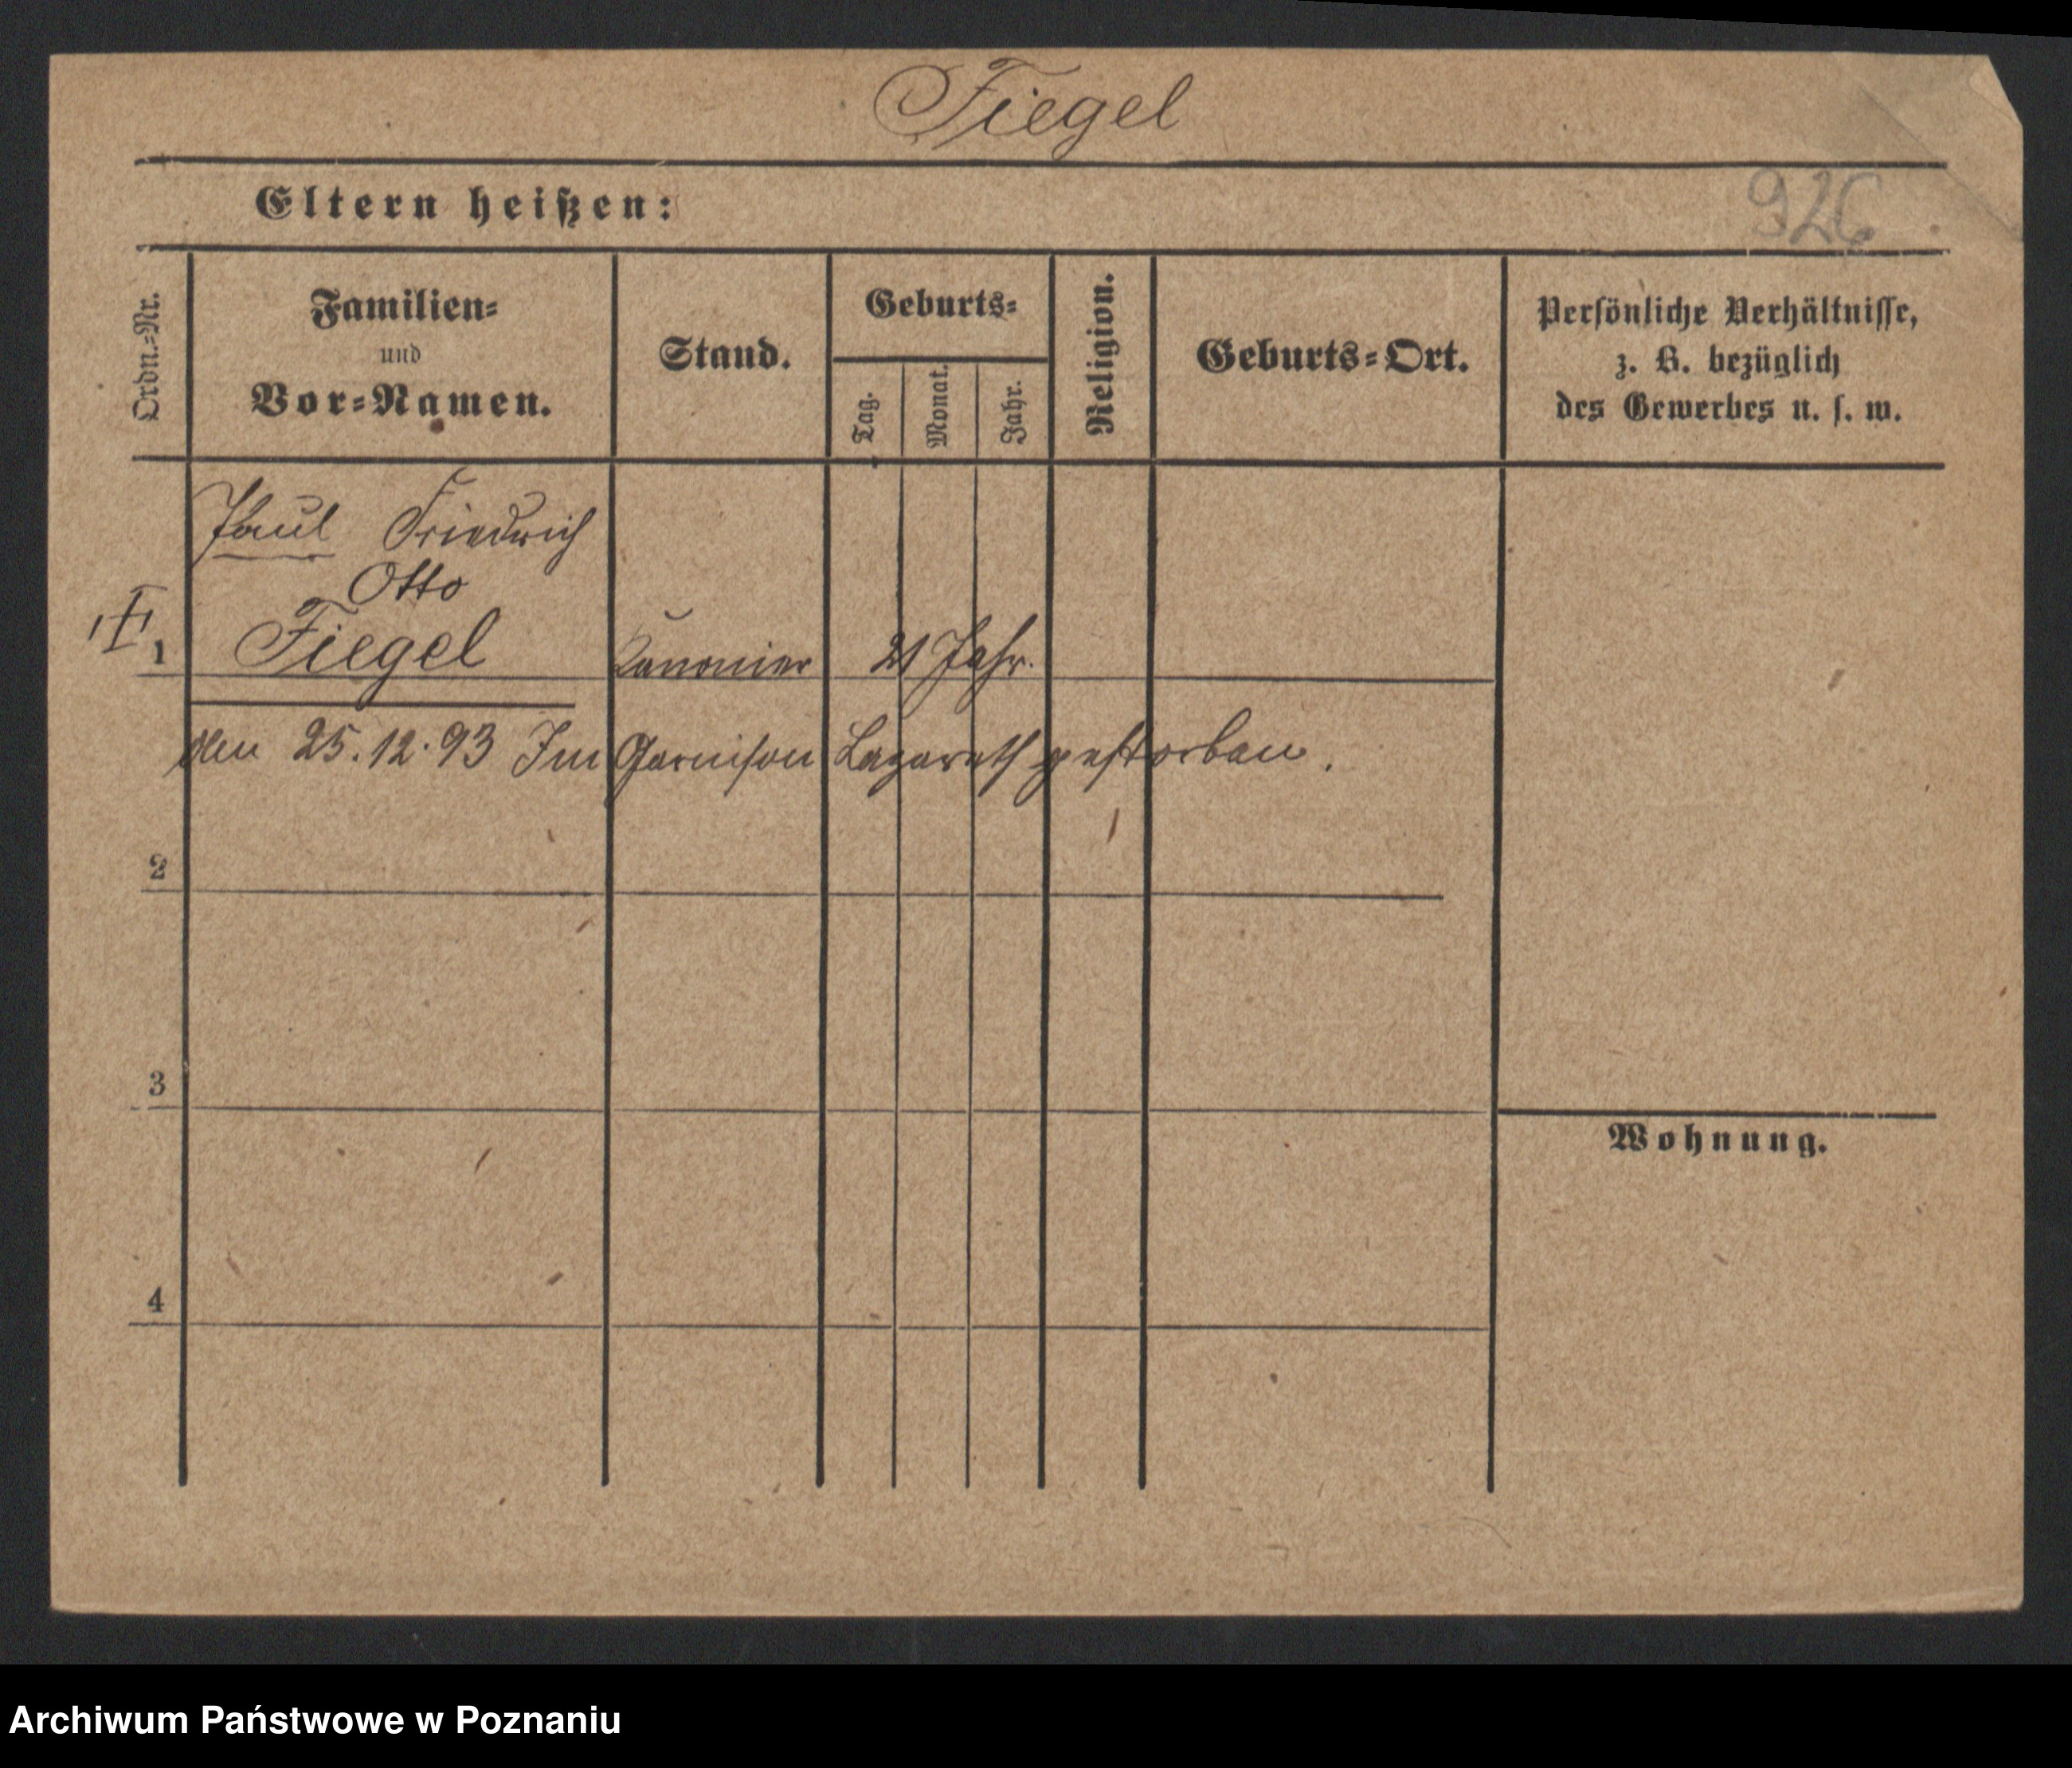 Fiegel
Eltern heißen:
926
Ordn.-Nr.
Familien-
und
Vor-Namen.
Stand.
Geburts-
Tag.
Monat.
Jahr.
Religion.
Geburts-Ort.
Persönliche Verhältnisse,
z. B. bezüglich
des Gewerbes u. s. w.
Paul Friedrich
Otto
1 Fiegel Kanonier 21 Jahr.
den 25.12.93 Im Garnison Lazareth gestorben.
2
3
Wohnung.
4
Archiwum Państwowe w Poznaniu